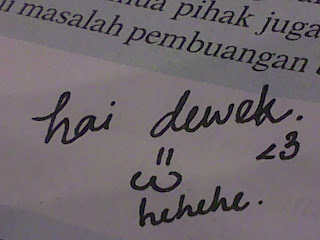 pihak juga
masalah pembuangan
hai dewek.
=3 <3
hehehe.